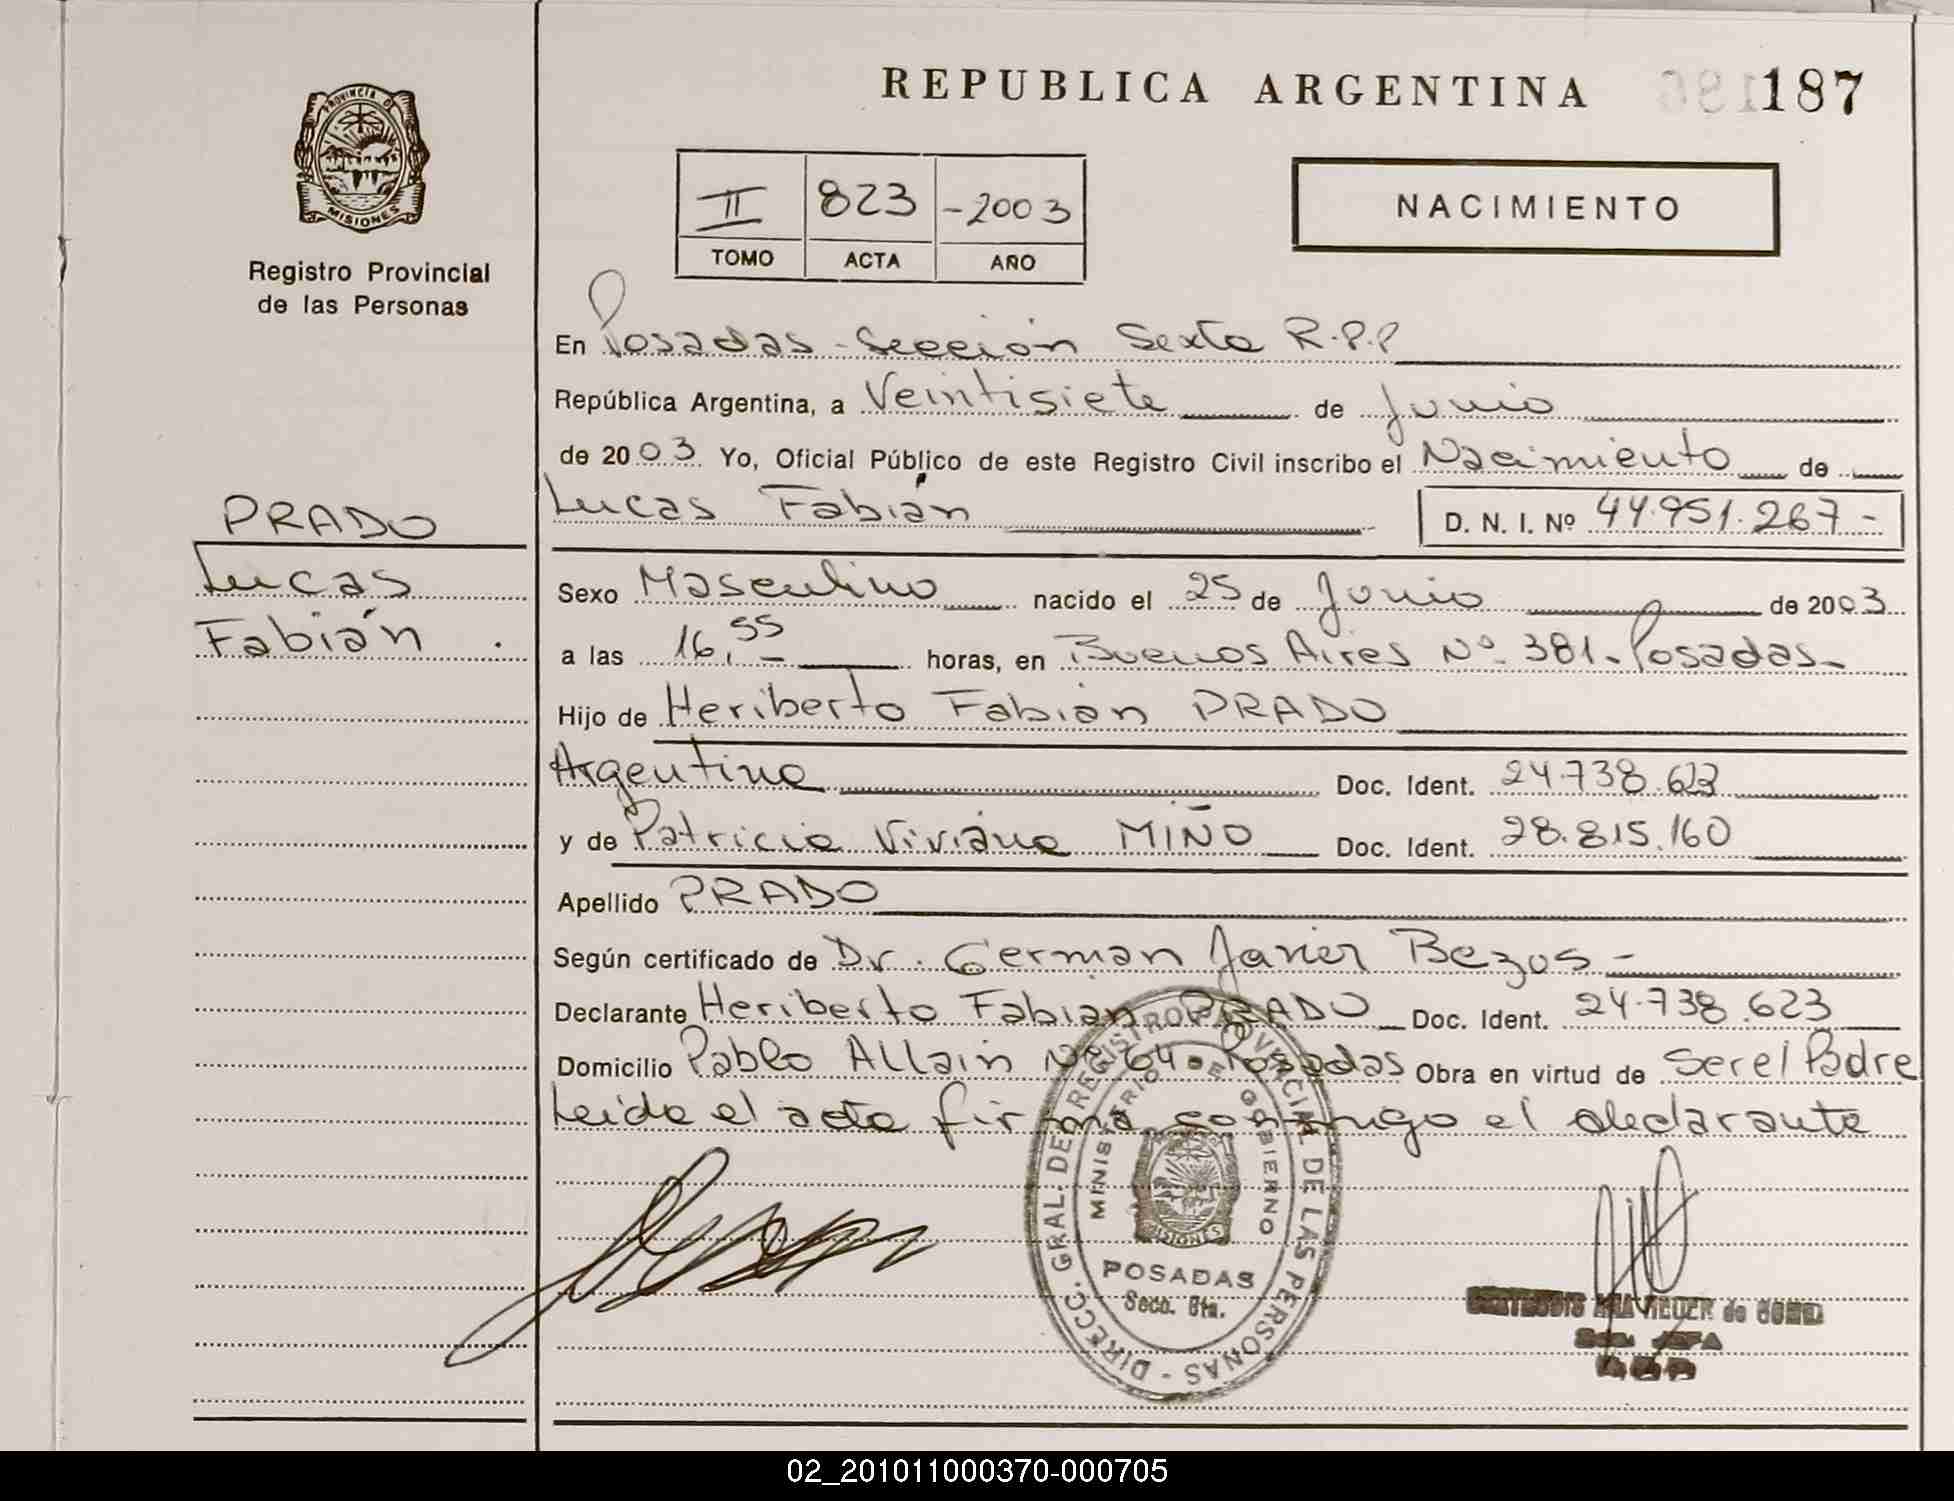 REPUBLICA ARGENTINA 187
PROVINCIA DE
MISIONES
Registro Provincial
de las Personas
II 823 -2003
TOMO ACTA AÑO
NACIMIENTO
En Posadas - Sección Sexta R.P.P
República Argentina, a Veintisiete de Junio
de 2003. Yo, Oficial Público de este Registro Civil inscribo el Nacimiento de
Lucas Fabián D. N. I. Nº 44.951.267-
PRADO
Lucas
Fabián
Sexo Masculino nacido el 25 de Junio de 2003
a las 16,55 horas, en Buenos Aires Nº 381 - Posadas-
Hijo de Heriberto Fabián PRADO
Argentino Doc. Ident. 24.738.623
y de Patricia Viviana MIÑO Doc. Ident. 28.815.160
Apellido PRADO
Según certificado de Dr. German Javier Bezos -
Declarante Heriberto Fabian PRADO Doc. Ident. 24.738.623
Domicilio Pablo Allain Nº 64 - Posadas Obra en virtud de ser el Padre
Leida el acta firma conmigo el declarante
DIRECC. GRAL. DE REGISTRO PROVINCIAL DE LAS PERSONAS -
MINISTERIO DE GOBIERNO
MISIONES
POSADAS
Secc. 6ta.
de
JEFA
02_201011000370-000705